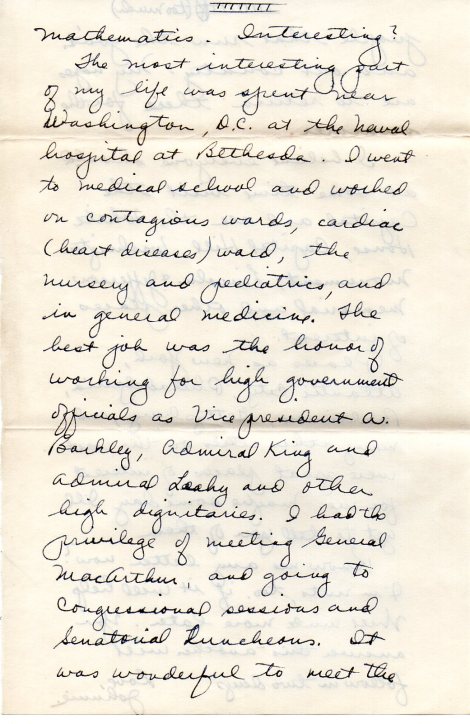 mathematics. Interesting?
The most interesting part
of my life was spent near
Washington, D.C. at the Naval
hospital at Bethesda. I went
to medical school and worked
on contagious wards, cardiac
(heart diseases) ward, the
nursery and pediatrics, and
in general medicine. The
best job was the honor of
working for high government
officials as Vice president A.
Barkley, Admiral King and
Admiral Leahy and other
high dignitaries. I had the
privilege of meeting General
MacArthur, and going to
Congressional sessions and
Senatorial Luncheons. It
was wonderful to meet the